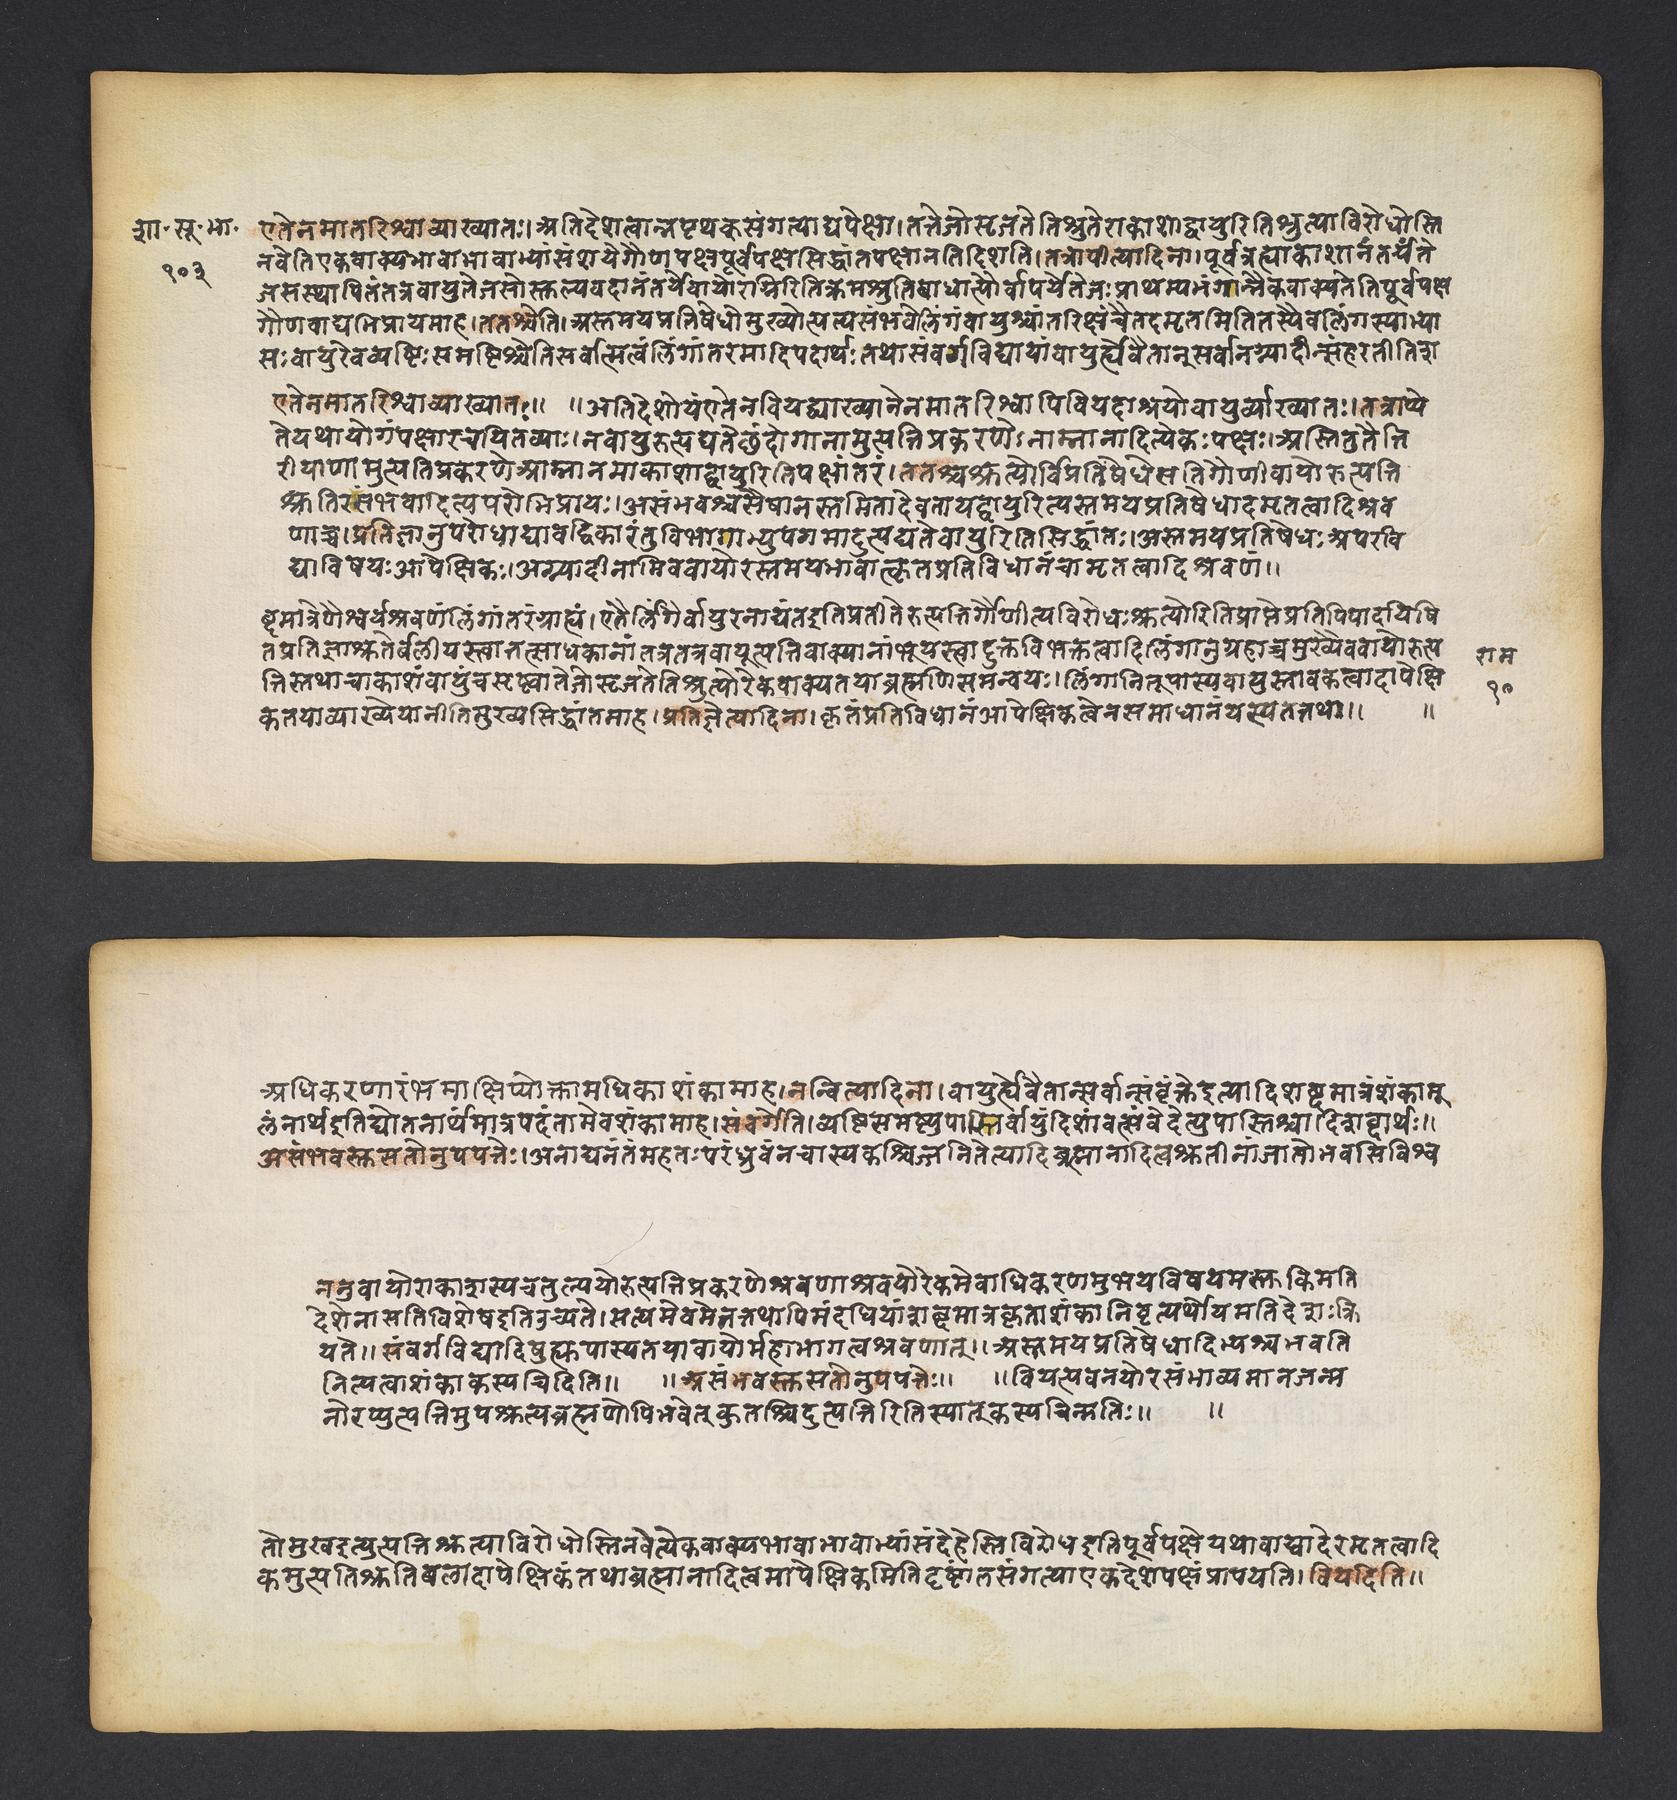 शा॰ सू॰ भा॰
१०३
एतेनमातरिश्वाव्याख्यातः। अतिदेशत्वान्नपृथक्संगत्याद्यपेक्षा। तत्तेजोसृजतेतिश्रुतेराकाशाद्वायुरितिश्रुत्याविरोधोस्ति
नवेतिएकवाक्यभावाभावाभ्यांसंशयेगौणपक्षपूर्वपक्षसिद्धांतपक्षानतिदिशति। तत्रापीत्यादिना। पूर्वत्रह्याकाशानंतर्यंते
जसस्थापितंतत्रवायुतेजसोस्तुल्यवदानंतर्येवायोरग्निरितिक्रमश्रुतिबाधात्पौर्वापर्येतेजःप्राथम्यभंगान्नैकवाक्यतेतिपूर्वपक्ष
गौणवाद्यभिप्रायमाह। ततश्चेति। अस्तमयप्रतिषेधोमुख्योत्पत्त्यसंभवेलिंगंवायुश्चांतरिक्षंचैतदमृतमितितस्यैवलिंगस्याभ्या
सःवायुरेवव्यष्टिःसमष्टिश्चेतिसर्वात्मित्वंलिंगांतरमादिपदार्थः तथासंवर्गविद्यायांवायुर्ह्येवैतान्सर्वानग्न्यादीन्संहरतीतिश
एतेनमातरिश्वाव्याख्यातः॥ ॥अतिदेशोयंएतेनवियद्व्याख्यानेनमातरिश्वापिवियदाश्रयोवायुर्व्याख्यातः। तत्राप्ये
तेयथायोगंपक्षारचयितव्याः। नवायुरुत्पद्यतेछंदोगानामुत्पत्तिप्रकरणेऽनाम्नानादित्येकःपक्षः। अस्तितुतैत्ति
रीयाणामुत्पत्तिप्रकरणेआम्नानमाकाशाद्वायुरितिपक्षांतरं। ततश्चश्रुत्योर्विप्रतिषेधेसतिगौणीवायोरुत्पत्ति
श्रुतिरसंभवादित्यपरोभिप्रायः। असंभवश्चसैषानस्तमितादेवतायद्वायुरित्यस्तमयप्रतिषेधादमृतत्वादिश्रव
णाच्च। प्रतिज्ञानुपरोधाद्यावद्विकारंतुविभागाभ्युपगमादुत्पद्यतेवायुरितिसिद्धांतः। अस्तमयप्रतिषेधःअपरवि
द्याविषयःआपेक्षिकः। अग्न्यादीनामिववायोरस्तमयभावात्कृतप्रतिविधानंचामृतत्वादिश्रवणं॥
ब्दमात्रेणैश्वर्यश्रवणंलिंगांतरंग्राह्यं। एतैर्लिंगैर्वायुरनाद्यंतइतिप्रतीतेरुत्पत्तिर्गौणीत्यविरोधःश्रुत्योरितिप्राप्तेप्रतिपिपादयिषि
तप्रतिज्ञाश्रुतेर्बलीयस्त्वात्तत्साधकानांतत्रतत्रवायूत्पत्तिवाक्यानांभूयस्त्वादुक्तविभक्तत्वादिलिंगानुग्रहाच्चमुख्यैववायोरुत्प
राम
१०
त्तिस्तथाचाकाशंवायुंचसृष्ट्वातेजोसृजतेतिश्रुत्योरेकवाक्यतयाब्रह्मणिसमन्वयः। लिंगानितूपास्यवायुस्तावकत्वादापेक्षि
कतयाव्याख्येयानीतिमुख्यसिद्धांतमाह। प्रतिज्ञेत्यादिना। कृतंप्रतिविधानंआपेक्षिकत्वेनसमाधानंयस्यतत्तथा॥ ॥
अधिकरणारंभमाक्षिप्योक्तामधिकाशंकामाह। नन्वित्यादिना। वायुर्ह्येवैतान्सर्वान्संवृंक्तेइत्यादिशब्दमात्रंशंकामू
लंनार्थइतिद्योतनार्थंमात्रपदंतामेवशंकामाह। संवर्गेति। व्यष्टिसमष्ट्युपास्तिर्वायुंदिशांवत्संवेदेत्युपास्तिश्चादिशब्दार्थः॥
असंभवस्तुसतोनुपपत्तेः। अनाद्यनंतंमहतःपरंध्रुवंनचास्यकश्चिज्जनितेत्यादिब्रह्मानादित्वश्रुतीनांजातोभवसिविश्व
ननुवायोराकाशस्यचतुल्ययोरुत्पत्तिप्रकरणेश्रवणाश्रवयोरेकमेवाधिकरणमुभयविषयमस्तुकिमति
देशेनासतिविशेषइतिउच्यते। सत्यमेवमेतत्तथापिमंदधियांशब्दमात्रकृताशंकानिवृत्यर्थोयमतिदेशःक्रि
यते॥ संवर्गविद्यादिषुह्युपास्यतयावायोर्महाभागत्वश्रवणात्॥ अस्तमयप्रतिषेधादिभ्यश्चभवति
नित्यत्वाशंकाकस्यचिदिति॥ ॥असंभवस्तुसतोनुपपत्तेः॥ ॥वियत्पवनयोरसंभाव्यमानजन्म
नोरप्युत्पत्तिमुपश्रुत्यब्रह्मणोपिभवेत्कुतश्चिदुत्पत्तिरितिस्यात्कस्यचिन्मतिः॥ ॥
तोमुखइत्युत्पत्तिश्रुत्याविरोधोस्तिनवेत्येकवाक्यभावाभावाभ्यांसंदेहेस्तिविरोधइतिपूर्वपक्षेयथावाय्वादेरमृतत्वादि
कमुत्पत्तिश्रुतिबलादापेक्षिकंतथाब्रह्मानादित्वमापेक्षिकमितिदृष्टांतसंगत्याएकदेशपक्षंप्रापयति। वियदिति॥